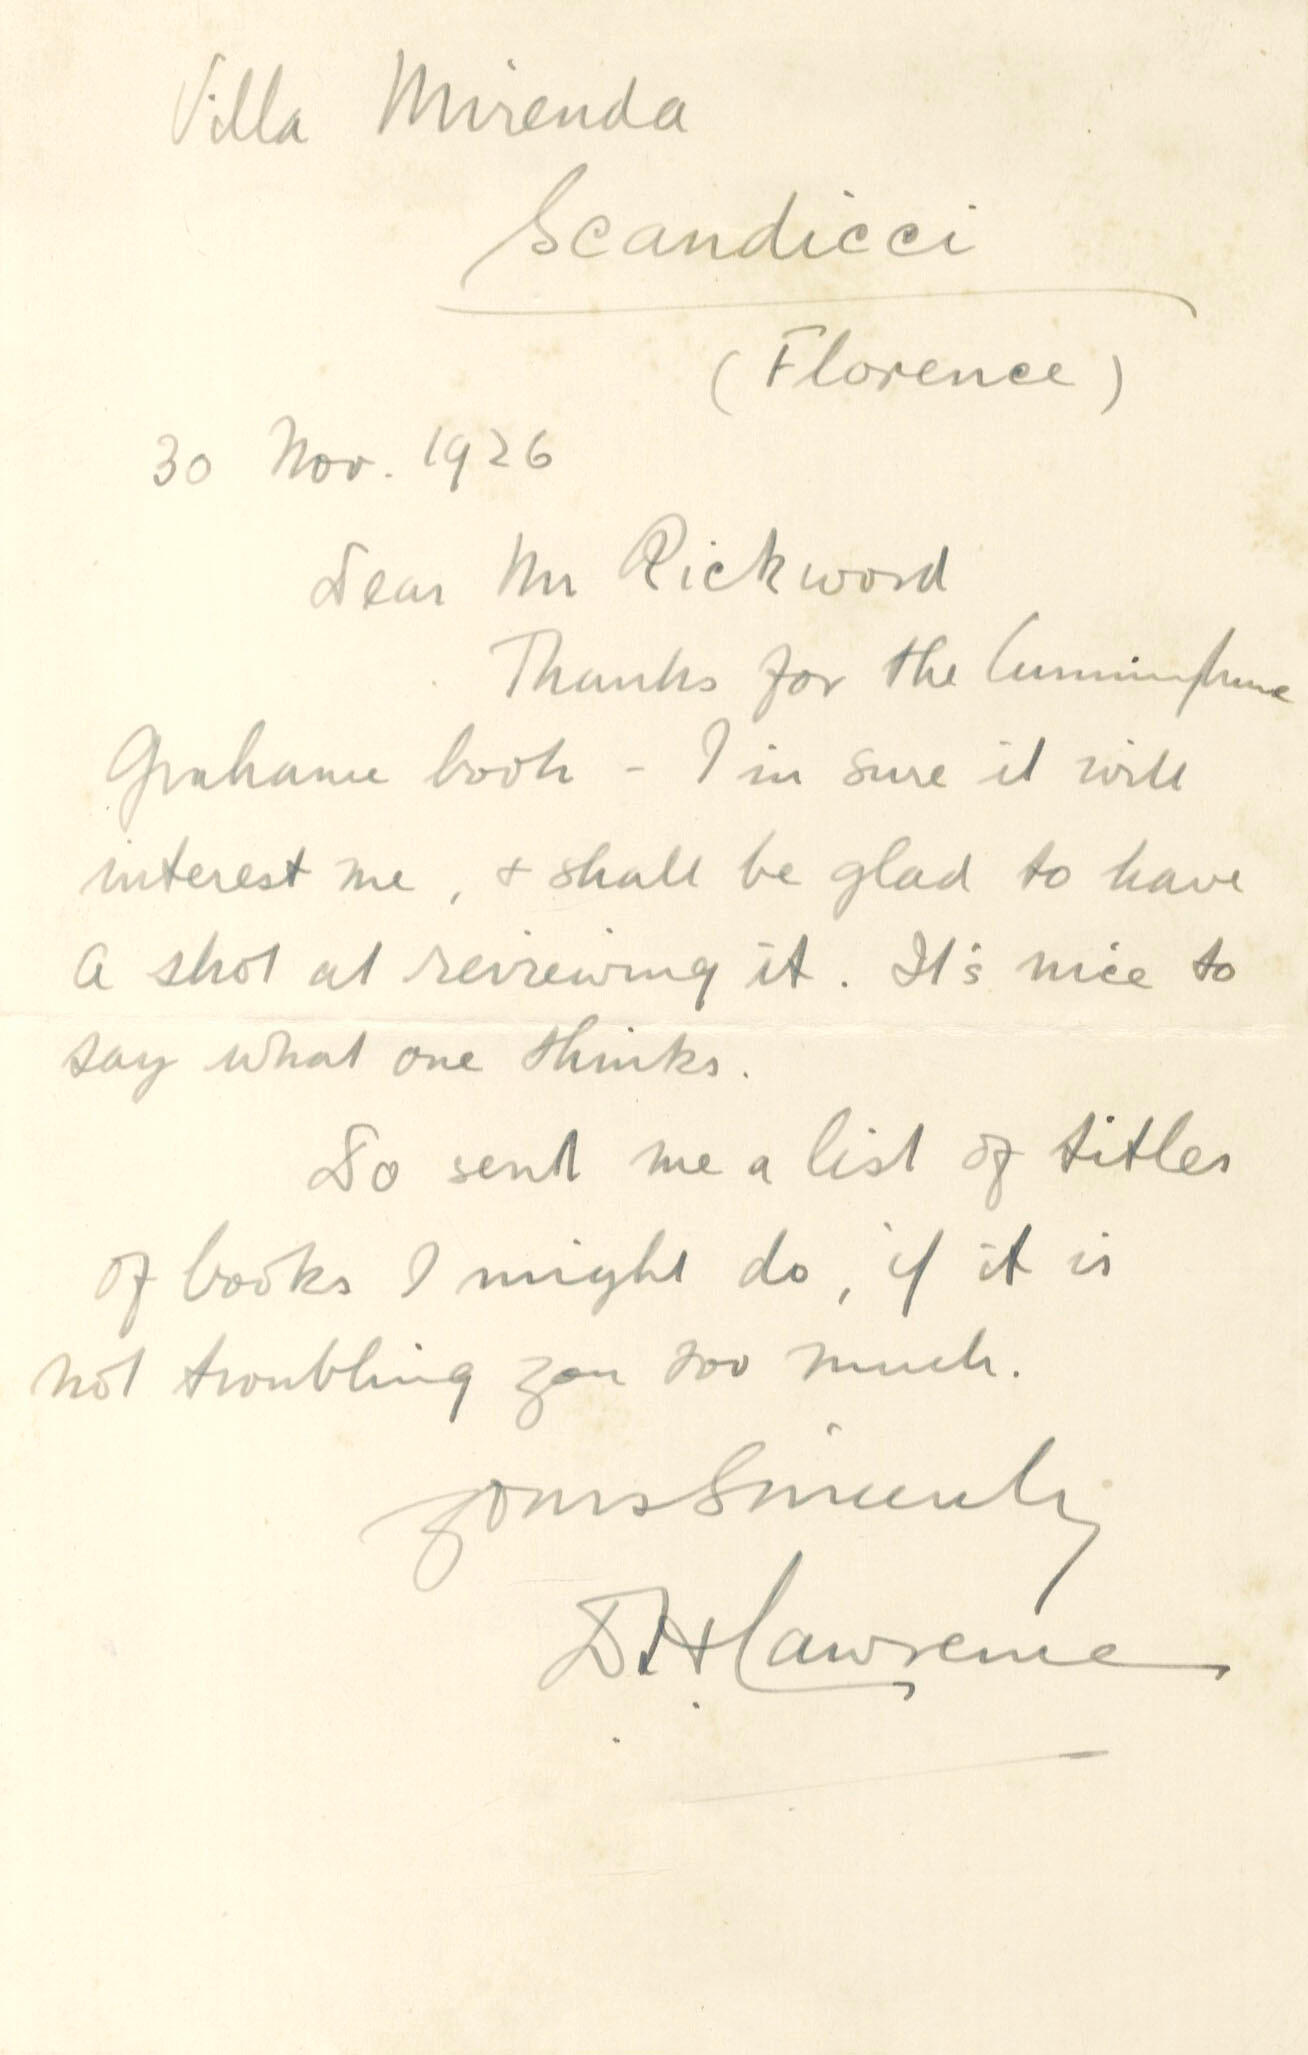 Villa Mirenda
Scandicci
(Florence)
30 Nov. 1926
Dear Mr Rickword
Thanks for the
Grahame book - I'm sure it will
interest me, & shall be glad to have
a shot at reviewing it. It's nice to
say what one thinks.
Do send me a list of titles
of books I might do, if it is
not troubling you too much.
Yours Sincerely
D.H. Lawrence